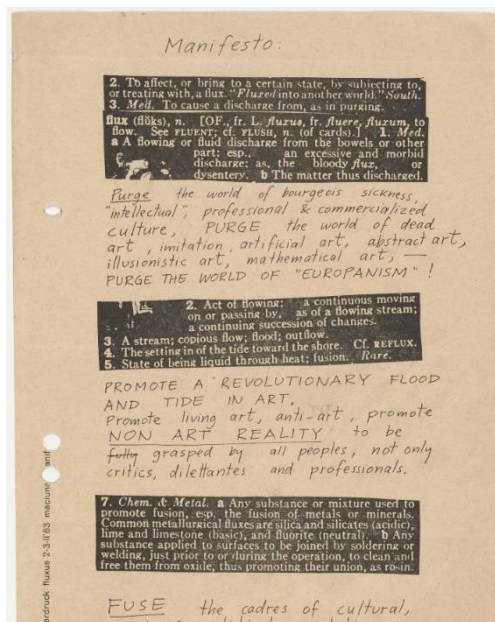 Manifesto:
2. To affect, or bring to a certain state, by subjecting to,
or treating with, a flux. "Fluxed into another world." South.
3. Med. To cause a discharge from, as in purging.
flux (flŭks), n. [OF., fr. L. fluxus, fr. fluere, fluxum, to
flow. See FLUENT; cf. FLUSH, n. (of cards).] 1. Med.
a A flowing or fluid discharge from the bowels or other
part; esp., an excessive and morbid
discharge; as, the bloody flux, or
dysentery. b The matter thus discharged.
Purge the world of bourgeois sickness,
"intellectual", professional & commercialized
culture, PURGE the world of dead
art, imitation, artificial art, abstract art,
illusionistic art, mathematical art, —
PURGE THE WORLD OF "EUROPANISM"!
2. Act of flowing; a continuous moving
on or passing by, as of a flowing stream;
a continuing succession of changes.
3. A stream; copious flow; flood; outflow.
4. The setting in of the tide toward the shore. Cf. REFLUX.
5. State of being liquid through heat; fusion. Rare.
PROMOTE A REVOLUTIONARY FLOOD
AND TIDE IN ART.
Promote living art, anti-art, promote
NON ART REALITY to be
fully grasped by all peoples, not only
critics, dilettantes and professionals.
7. Chem. & Metal. a Any substance or mixture used to
promote fusion, esp. the fusion of metals or minerals.
Common metallurgical fluxes are silica and silicates (acidic),
lime and limestone (basic), and fluorite (neutral). b Any
substance applied to surfaces to be joined by soldering or
welding, just prior to or during the operation, to clean and
free them from oxide, thus promoting their union, as rosin.
FUSE the cadres of cultural,
erdruck fluxus 2-3-II'63 maciunas